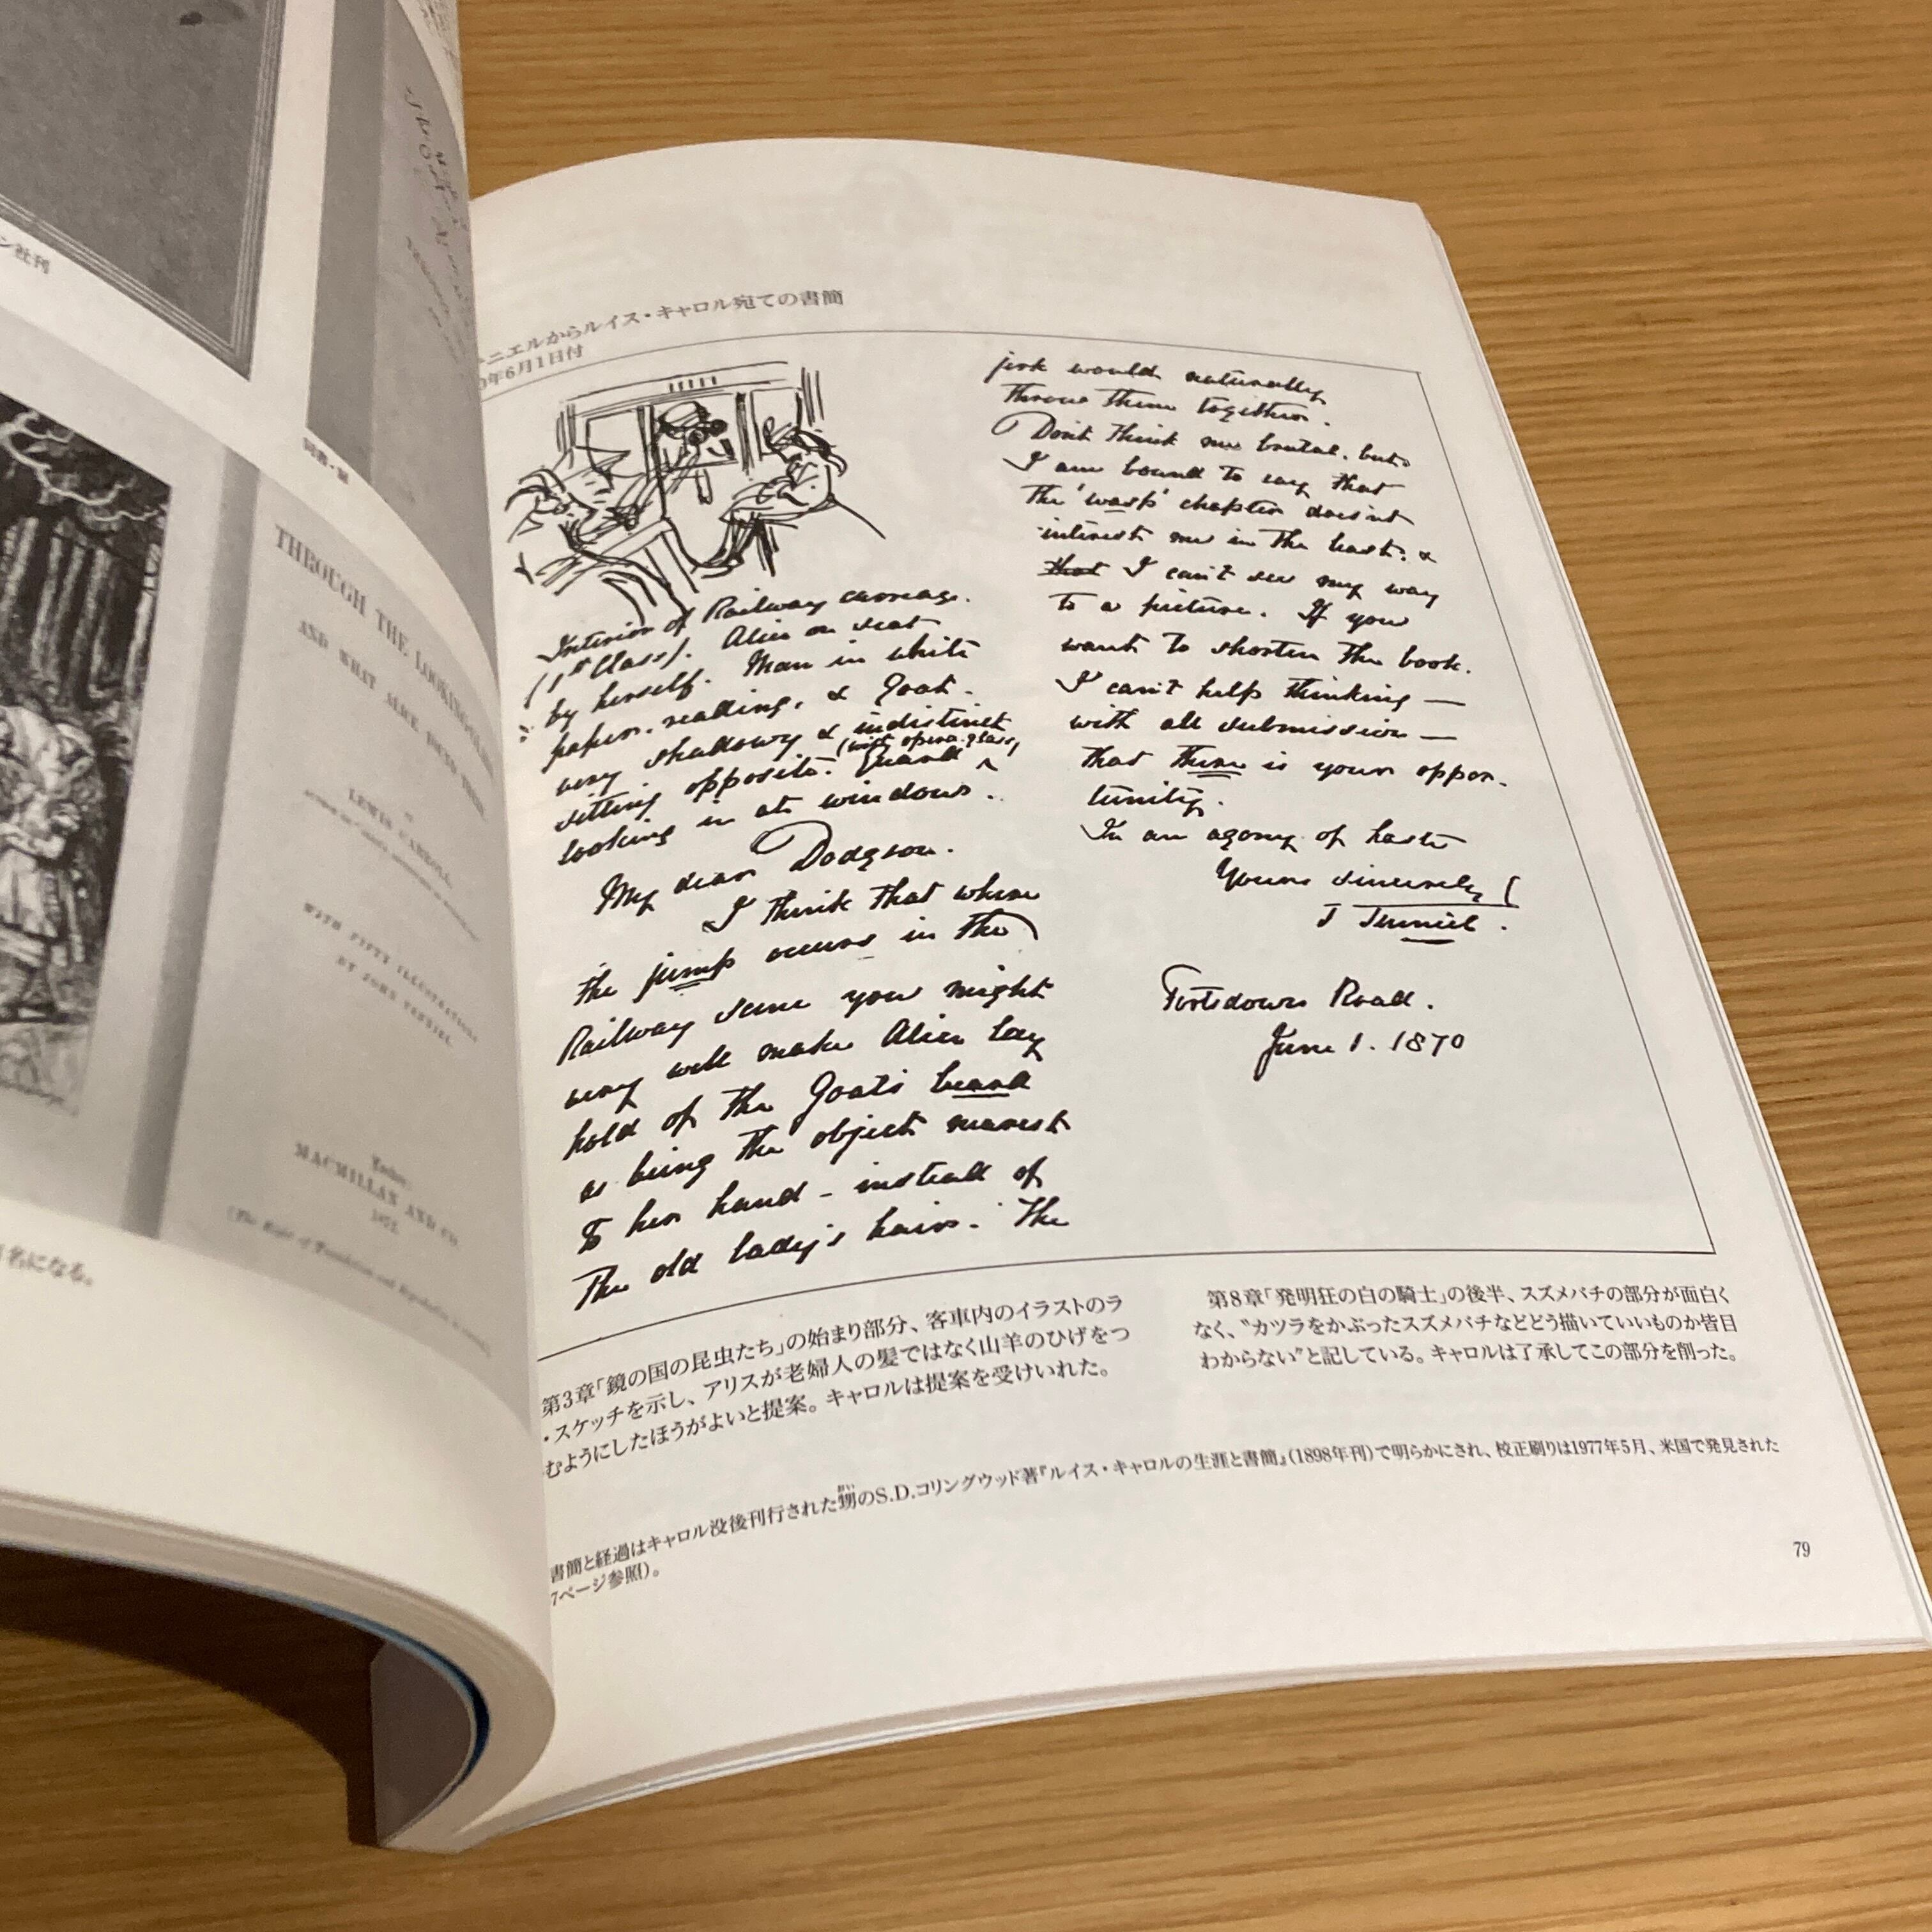 ン社刊
THROUGH THE LOOKING-GLASS
AND WHAT ALICE FOUND THERE
BY
LEWIS CARROLL
WITH FIFTY ILLUSTRATIONS
BY JOHN TENNIEL
London:
MACMILLAN AND CO.
1872
名になる。
ニエルからルイス・キャロル宛ての書簡
0年6月1日付
Interior of Railway carriage.
(1st Class). Alice on seat
by herself. Man in white
paper, reading, & Goat.
very shadowy & indistinct
sitting opposite. Guard (with opera-glass)
looking in at window.
My dear Dodgson.
I think that when
the jump occurs in the
Railway scene you might
very well make Alice lay
hold of the Goat's beard
as being the object nearest
to her hand - instead of
the old lady's hair. The
jerk would naturally
throw them together.
Don't think me brutal, but
I am bound to say that
the 'wasp' chapter doesn't
interest me in the least, &
that I can't see my way
to a picture. If you
want to shorten the book,
I can't help thinking —
with all submission —
that there is your oppor-
tunity.
In an agony of haste
Yours sincerely
J Tenniel.
Portsdown Road.
June 1. 1870
第3章「鏡の国の昆虫たち」の始まり部分、客車内のイラストのラ
・スケッチを示し、アリスが老婦人の髪ではなく山羊のひげをつ
むようにしたほうがよいと提案。キャロルは提案を受けいれた。
第8章「発明狂の白の騎士」の後半、スズメバチの部分が面白く
なく、“カツラをかぶったスズメバチなどどう描いていいものか皆目
わからない”と記している。キャロルは了承してこの部分を削った。
書簡と経過はキャロル没後刊行された甥のS.D.コリングウッド著『ルイス・キャロルの生涯と書簡』(1898年刊)で明らかにされ、校正刷りは1977年5月、米国で発見された
7ページ参照)。
79